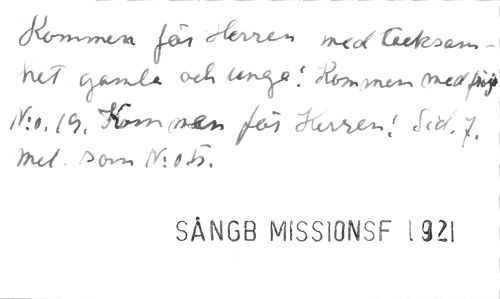 Kommen för Herren med tacksam-
het gamla och unga! Kommen med
N:o. 19. Kommen för Herren! Sid. 7.
mel. som N:o 5.
SÅNGB MISSIONSF 1921